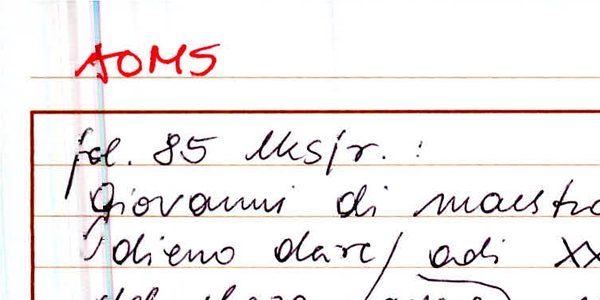 AOMS
fol. 85 lks/r. :
Giovanni di maestro
dieno dare / adi XX